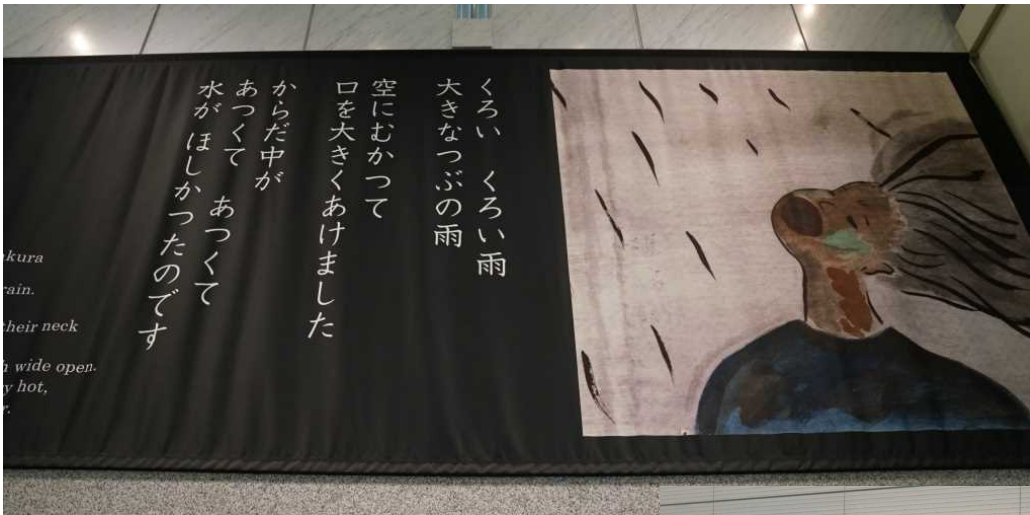 くろい　くろい雨
大きなつぶの雨
空にむかつて
口を大きくあけました
からだ中が
あつくて　あつくて
水が ほしかつたのです
rain.
their neck
wide open.
hot,